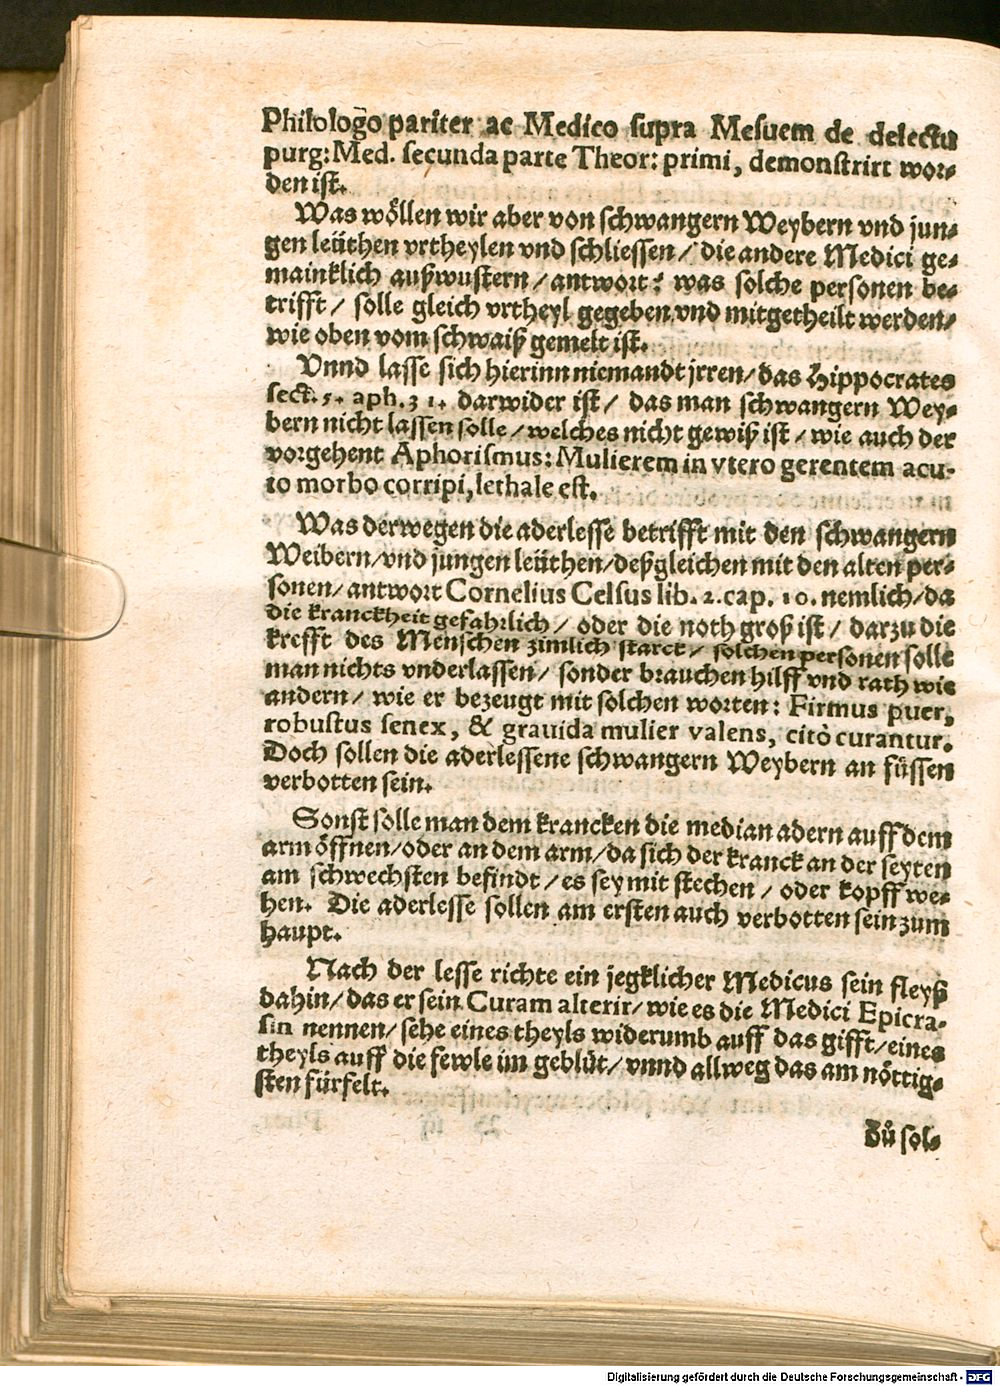 Philologo pariter ac Medico supra Mesuem de delectu
purg: Med. secunda parte Theor: primi, demonstrirt wor-
den ist.
Was wöllen wir aber von schwangern Weybern vnd jun-
gen leüthen vrtheylen vnd schliessen/ die andere Medici ge-
mainklich außwustern/ antwort: was solche personen be-
trifft/ solle gleich vrtheyl gegeben vnd mitgetheilt werden/
wie oben vom schwaiß gemelt ist.
Vnnd lasse sich hierinn niemandt jrren/ das Hippocrates
sect. 5. aph. 31. darwider ist/ das man schwangern Wey-
bern nicht lassen solle/ welches nicht gewiß ist/ wie auch der
vorgehent Aphorismus: Mulierem in vtero gerentem acu-
to morbo corripi, lethale est.
Was derwegen die aderlesse betrifft mit den schwangern
Weibern/ vnd jungen leüthen/ deßgleichen mit den alten per-
sonen/ antwort Cornelius Celsus lib. 2. cap. 10. nemlich/ da
die kranckheit gefahrlich/ oder die noth groß ist/ darzu die
krefft des Menschen zimlich starck/ solchen personen solle
man nichts vnderlassen/ sonder brauchen hilff vnd rath wie
andern/ wie er bezeugt mit solchen worten: Firmus puer,
robustus senex, & grauida mulier valens, citò curantur.
Doch sollen die aderlessene schwangern Weybern an füssen
verbotten sein.
Sonst solle man dem krancken die median adern auff dem
arm öffnen/ oder an dem arm/ da sich der kranck an der seyten
am schwechsten befindt/ es sey mit stechen/ oder kopff we-
hen. Die aderlesse sollen am ersten auch verbotten sein zum
haupt.
Nach der lesse richte ein jegklicher Medicus sein fleyß
dahin/ das er sein Curam alterir/ wie es die Medici Epicra-
sin nennen/ sehe eines theyls widerumb auff das gifft/ eines
theyls auff die fewle im geblüt/ vnnd allweg das am nöttig-
sten fürfelt.
Zů sol-
Digitalisierung gefördert durch die Deutsche Forschungsgemeinschaft - DFG